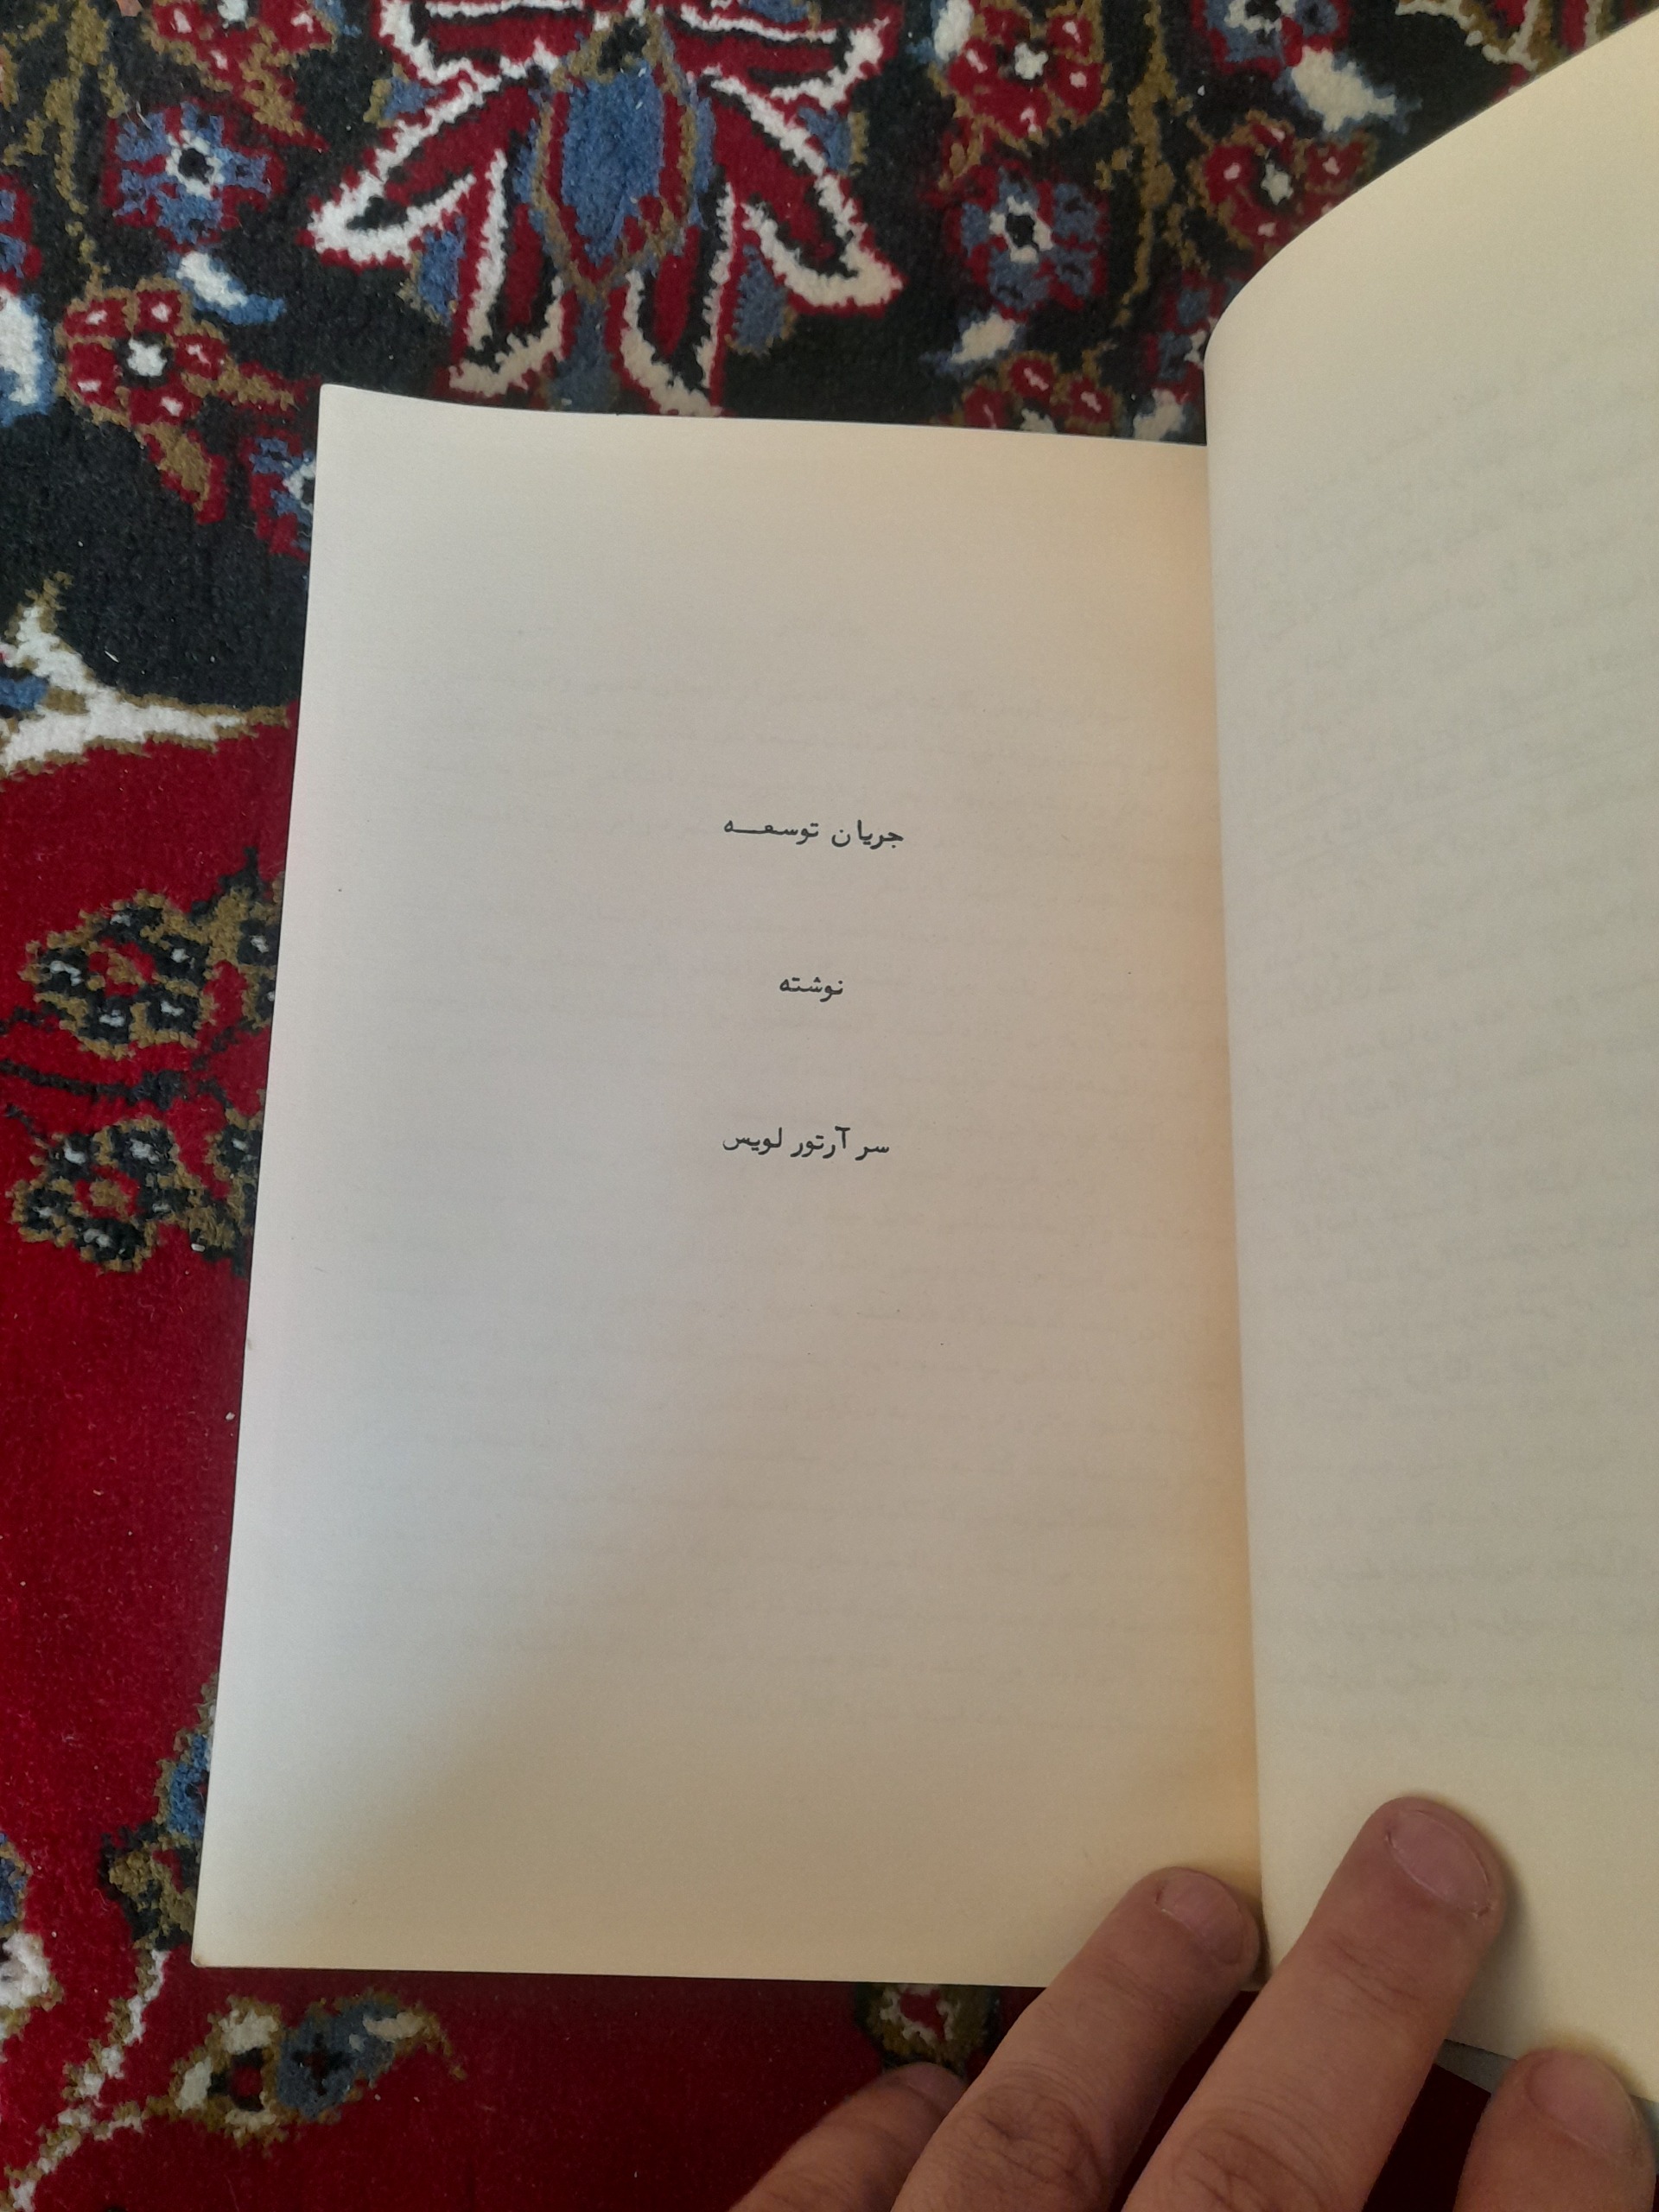 جریان توسعه
نوشته
سر آرتور لویس